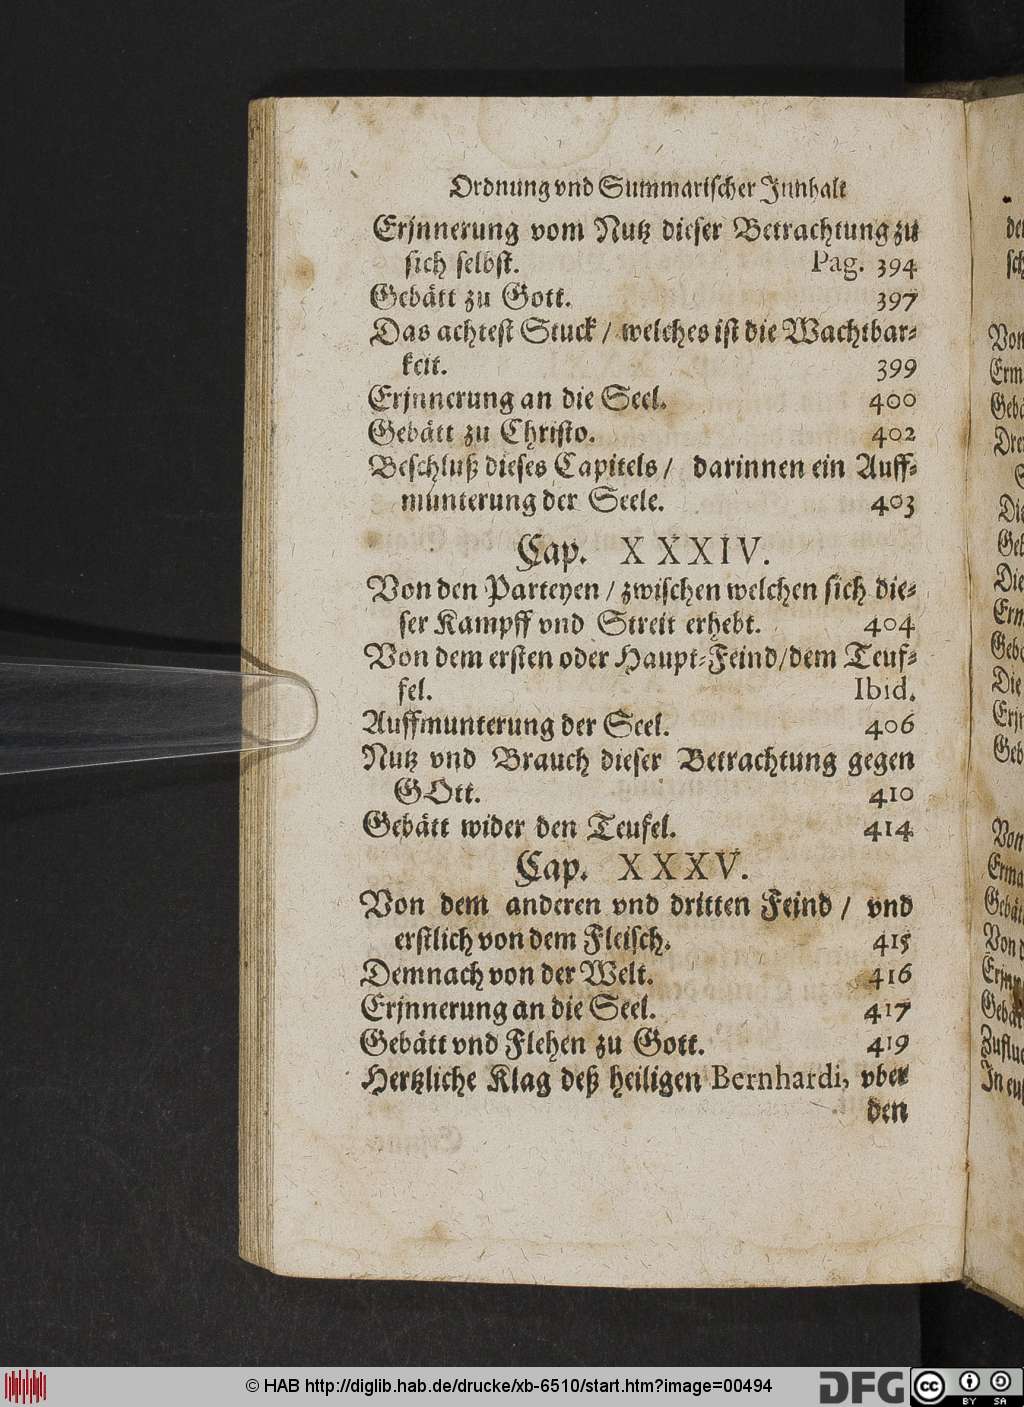 Ordnung vnd Summarischer Jnnhalt
Erjnnerung vom Nutz dieser Betrachtung zu
sich selbst. Pag. 394
Gebätt zu Gott. 397
Das achtest Stuck / welches ist die Wachtbar⸗
keit. 399
Erjnnerung an die Seel. 400
Gebätt zu Christo. 402
Beschluß dieses Capitels / darinnen ein Auff⸗
munterung der Seele. 403
Cap. XXXIV.
Von den Parteyen / zwischen welchen sich die⸗
ser Kampff vnd Streit erhebt. 404
Von dem ersten oder Haupt⸗Feind/dem Teuf⸗
fel. Ibid.
Auffmunterung der Seel. 406
Nutz vnd Brauch dieser Betrachtung gegen
GOtt. 410
Gebätt wider den Teufel. 414
Cap. XXXV.
Von dem anderen vnd dritten Feind / vnd
erstlich von dem Fleisch. 415
Demnach von der Welt. 416
Erjnnerung an die Seel. 417
Gebätt vnd Flehen zu Gott. 419
Hertzliche Klag deß heiligen Bernhardi, vber
den
© HAB http://diglib.hab.de/drucke/xb-6510/start.htm?image=00494
DFG
cc BY SA